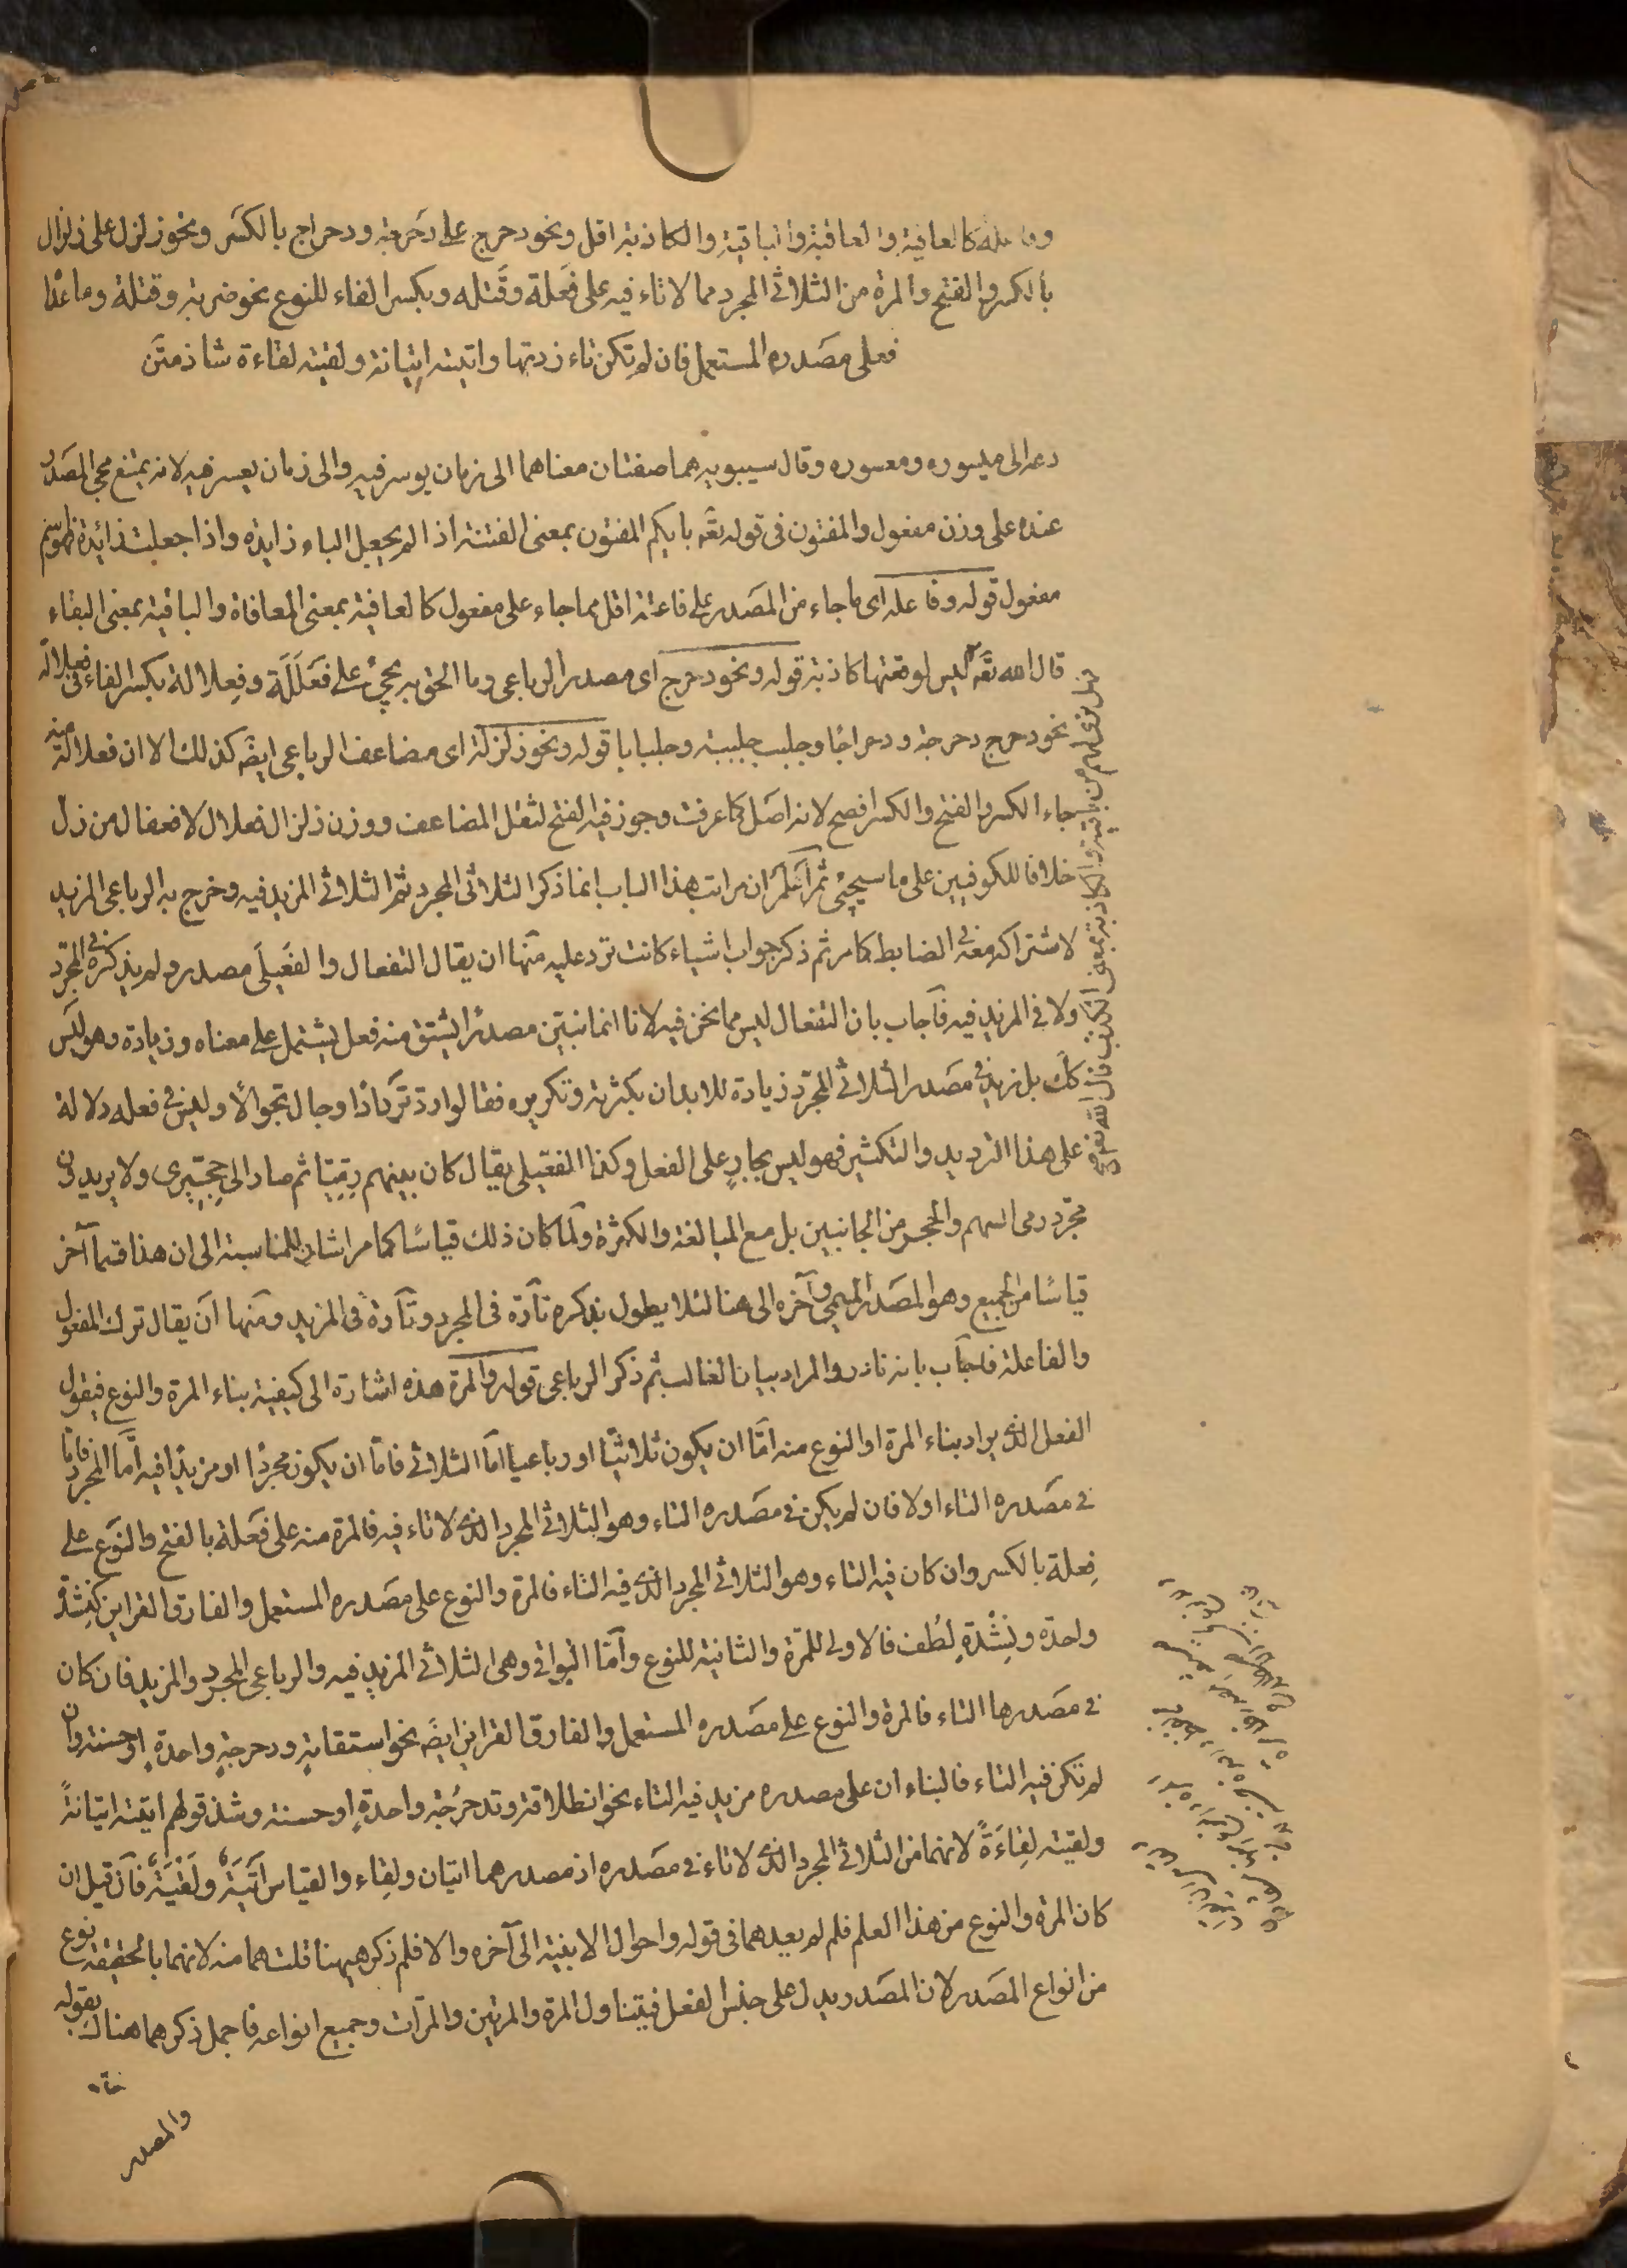 وفاعلة كالعافية والعاقبة والباقية والكاذبة اقل ونحو دحرج على دَحرجة ودحراج بالكسَر ونحو زلزل على زلزال
بالكسر والفتح والمرة من الثلاثى المجرد مما لا تاء فيه على فَعلة وقَتله وبكسر الفاء للنوع نحو ضربة وقتلة وما عدا
فعلى مصَدره المستعمل فان لم تكن تاء زدتها واتيته اِتيانة ولقيته لقاءة شاذ متَن
دعه الى ميسوره ومعسوره وقال سيبويه هما صفتان معناهما الى زمان يوسر فيه والى زمان يعسر فيه لانه يمتنع مجئ المصَدر
عنده على وزن مفعول والمفتون فى قوله تعَه بايكم المفتون بمعنى الفتنة اذا لم يجعل الباء زايده واذا جعلت زائدة فهو اسم
مفعول قوله وفاعله اى ما جاء من المصَدر على فاعلة اقل مما جاء على مفعول كالعافية بمعنى المعافاة والباقية بمعنى البقاء
قال الله تعَه ليس لوقعتها كاذبة قوله ونحو دحرج اى مصدر الرباعى وما الحق به يجئ على فَعَلَلَة وفِعلالة بكسر الفاء فى فعلاله
نحو دحرج دحرجة ودحراجًا وجلبب جلببة وجلبابا قوله ونحو زلزلة اى مضاعف الرباعى ايضَه كذلك الا ان فعلالة منه
جاء الكسر والفتح والكسر افصح لانه اصَل كما عرفت وجوز فيه الفتح لثقل المضاعف ووزن زلزال فعلال لا فعفال من زل
خلافا للكوفيين على ما سيجئ ثم اعَلم ان مراتب هذا الباب انما ذكر الثلاثى المجرد ثم الثلاثى المزيد فيه وخرج به الرباعى المزيد
لاشتراكه معَه فى الضابط كما مر ثم ذكر جواب اشياء كانت ترد عليه منها ان يقال التفعال والفِعّيلَى مصدر ولم يذكره فى المجرد
ولا فى المزيد فيه فآجاب بان التفعال ليس مما نحن فيه لانا انما نبيّن مصدرًا يشتق منه فعل يشتمل على معناه وزيادة وهو ليس
كك بل نزيد فى مصَدر الثلاثى المجرّد زيادة للايذان بكثرته وتكريره فقالوا ردّ تَردَادًا وجال تجوالًا وليس فى فعله دلالة
على هذا الترديد والتكثير فهو ليس بجارٍ على الفعل وكذا الفعّيلى يقال كان بينهم رِمِّيّا ثم صار الى حِجّيزى ولا يريدون
مجرّد رمى السهم والحجز من الجانبين بل مع المبالغة والكثرة ولّما كان ذلك قياسًا كما مر اشار للمناسبة الى ان هذا قسما آخر
قياسًا من الجميع وهو المصَدر الميمى وآخره الى هنا لئلا يطول بذكره تآرة فى المجرد وتآرة فى المزيد ومنها آن يقال ترك المفعول
والفاعلة فاجآب بانه نادر والمراد بيان الغالب ثم ذكر الرباعى قوله والمرة هذه اشارة الى كيفية بناء المرة والنوع فيقول
الفعل الذى يراد بناء المرة او النوع منه امّا ان يكون ثلاثيّا او رباعيا امّا الثلاثى فامّا ان يكون مجردًا او مزيدًا فيه امّا المجرد فامّا
فى مصَدره التاء اولا فان لم يكن فى مصَدره التاء وهو الثلاثى المجرد الذى لا تاء فيه فالمرة منه على فَعلة بالفتح والنوَع على
فِعلة بالكسر وان كان فيه التاء وهو الثلاثى المجرد الذى فيه التاء فالمرة والنوع على مصَدره المستعمل والفارق القراين كنِشدَة
واحدة ونِشْدَةِ لِطُف فالاولى للمّرة والثانية للنوع وآمّا البواقى وهى الثلاثى المزيد فيه والرباعى المجرد والمزيد فان كان
فى مصَدرها التاء فالمرة والنوع على مصَدره المستعمل والفارق القراين ايضَه نحو استقامةٍ ودحرجةٍ واحدةٍ او حسنة وان
لم تكن فيه التاء فالبناء ان على مصدره مزيد فيه التاء نحو انطلاقة وتدحرُجة واحدةٍ او حسنة وشذ قولهم اتيته اتيانةً
ولقيته لِقاءَةً لانهما من الثلاثى المجرد الذى لا تاء فى مصَدره اذ مصدرهما اتيان ولِقاء والقياس آتَيَةً ولَقْيَةً فآن قيل ان
كان المرة والنوع من هذا العلم فلم لم يعدهما فى قوله واحوال الابنية الى آخره والا فلم ذكر هيهنا قلت هما منه لانهما بالحقيقة نوع
من انواع المصَدر لان المصَدر يدل على جنس الفعل فيتناول المرة والمرتين والمرّات وجميع انواعه فاجمل ذكرهما هناك بقوله
والمصدر